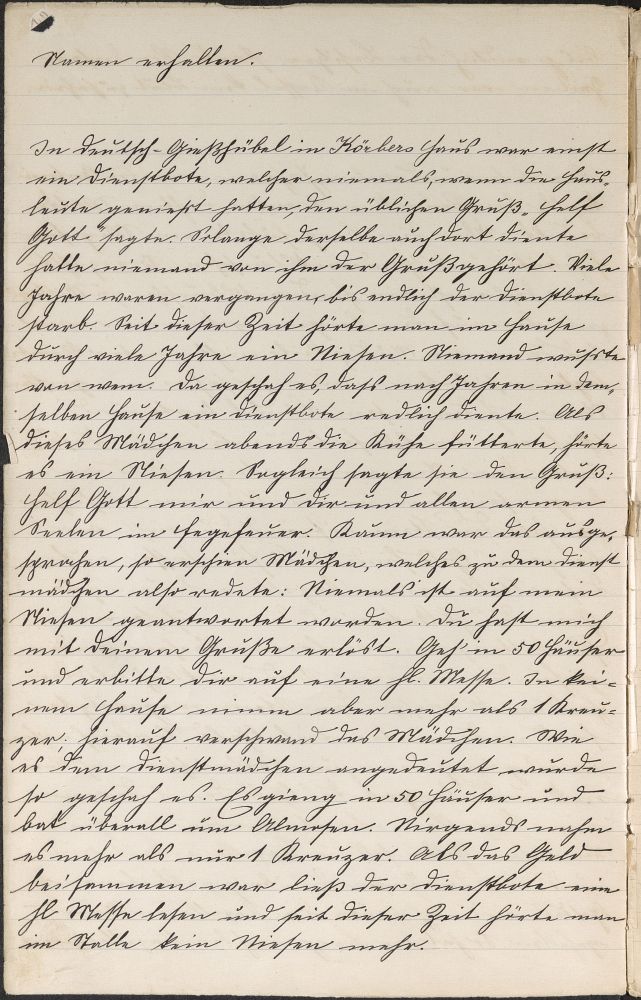 Namen erhalten.
In Deutsch-Gießhübel in Körbers Haus war einst
ein Dienstbote, welcher niemals, wenn die Haus-
leute genießt hatten, den üblichen Gruß „Helf
Gott" sagte. Solange derselbe auch dort diente
hatte niemand von ihm der Gruß gehört. Viele
Jahre waren vergangen, bis endlich der Dienstbote
starb. Seit dieser Zeit hörte man im Hause
durch viele Jahre ein Niesen. Niemand wusste
von wem. Da geschah es, dass nach Jahren in dem-
selben Hause ein Dienstbote redlich diente. Als
dieses Mädchen abends die Kühe fütterte, hörte
es ein Niesen. Sogleich sagte sie den Gruß:
Helf Gott mir und dir und allen armen
Seelen im Fegefeuer. Kaum war das ausge-
sprochen, so erschien Mädchen, welches zu dem Dienst
mädchen also redete: Niemals ist auf mein
Niesen geantwortet worden. Du hast mich
mit deinem Gruße erlöst. Geh' in 50 Häuser
und erbitte dir auf eine hl. Messe. In kei-
nem Hause nimm aber mehr als 1 Kreu-
zer; hierauf verschwand das Mädchen. Wie
es dem Dienstmädchen angedeutet wurde
so geschah es. Es gieng in 50 Häuser und
bat überall um Almosen. Nirgends nahm
es mehr als nur 1 Kreuzer. Als das Geld
beisammen war ließ der Dienstbote eine
hl Messe lesen und seit dieser Zeit hörte man
im Stalle kein Niesen mehr.